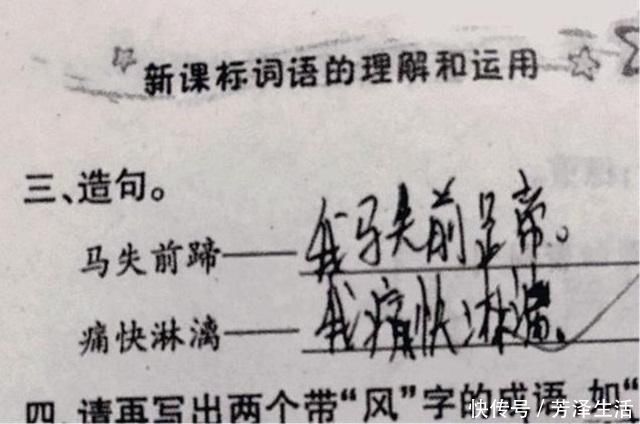 新课标词语的理解和运用
三、造句。
马失前蹄——我马失前蹄。
痛快淋漓——我痛快淋漓。
四、请再写出两个带“风”字的成语，如“
快传号／芳泽生活